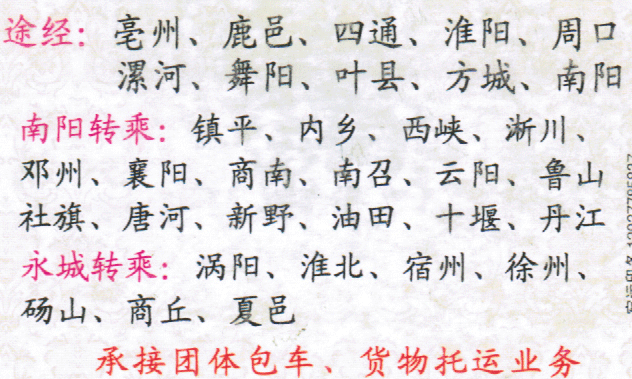 途经：亳州、鹿邑、四通、淮阳、周口
漯河、舞阳、叶县、方城、南阳
南阳转乘：镇平、内乡、西峡、淅川、
邓州、襄阳、商南、南召、云阳、鲁山
社旗、唐河、新野、油田、十堰、丹江
永城转乘：涡阳、淮北、宿州、徐州、
砀山、商丘、夏邑
承接团体包车、货物托运业务